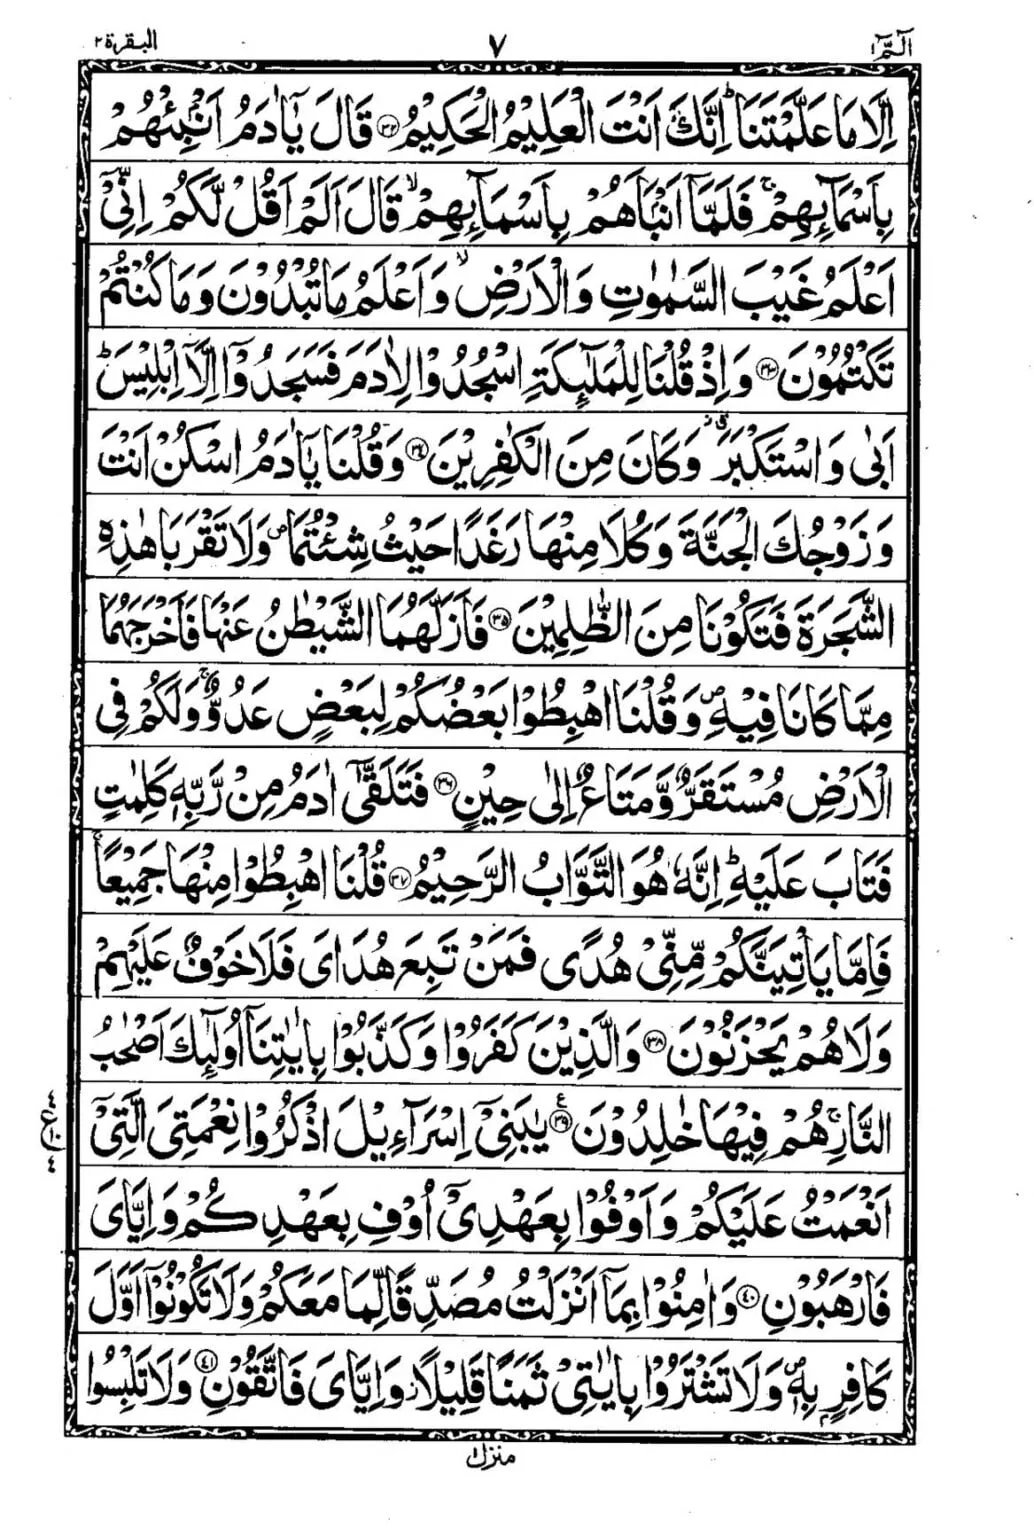 الٓمّٓ ١
٧
البقرة ٢
اِلَّا مَا عَلَّمْتَنَاؕ اِنَّكَ اَنْتَ الْعَلِيْمُ الْحَكِيْمُ ﴿۳۲﴾ قَالَ يٰۤاٰدَمُ اَنْۢبِئْهُمْ
بِاَسْمَآىِٕهِمْۚ فَلَمَّاۤ اَنْۢبَاَهُمْ بِاَسْمَآىِٕهِمْۙ قَالَ اَلَمْ اَقُلْ لَّكُمْ اِنِّيْۤ
اَعْلَمُ غَيْبَ السَّمٰوٰتِ وَالْاَرْضِۙ وَاَعْلَمُ مَا تُبْدُوْنَ وَمَا كُنْتُمْ
تَكْتُمُوْنَ ﴿۳۳﴾ وَاِذْ قُلْنَا لِلْمَلٰٓىِٕكَةِ اسْجُدُوْا لِاٰدَمَ فَسَجَدُوْۤا اِلَّاۤ اِبْلِيْسَؕ
اَبٰى وَاسْتَكْبَرَ ٘ۗ وَكَانَ مِنَ الْكٰفِرِيْنَ ﴿۳۴﴾ وَقُلْنَا يٰۤاٰدَمُ اسْكُنْ اَنْتَ
وَزَوْجُكَ الْجَنَّةَ وَكُلَا مِنْهَا رَغَدًا حَيْثُ شِئْتُمَا۪ وَلَا تَقْرَبَا هٰذِهِ
الشَّجَرَةَ فَتَكُوْنَا مِنَ الظّٰلِمِيْنَ ﴿۳۵﴾ فَاَزَلَّهُمَا الشَّيْطٰنُ عَنْهَا فَاَخْرَجَهُمَا
مِمَّا كَانَا فِيْهِ۪ وَقُلْنَا اهْبِطُوْا بَعْضُكُمْ لِبَعْضٍ عَدُوٌّۚ وَلَكُمْ فِى
الْاَرْضِ مُسْتَقَرٌّ وَّمَتَاعٌ اِلٰى حِيْنٍ ﴿۳۶﴾ فَتَلَقّٰۤى اٰدَمُ مِنْ رَّبِّهٖ كَلِمٰتٍ
فَتَابَ عَلَيْهِؕ اِنَّهٗ هُوَ التَّوَّابُ الرَّحِيْمُ ﴿۳۷﴾ قُلْنَا اهْبِطُوْا مِنْهَا جَمِيْعًاۚ
فَاِمَّا يَاْتِيَنَّكُمْ مِّنِّيْ هُدًى فَمَنْ تَبِعَ هُدَايَ فَلَا خَوْفٌ عَلَيْهِمْ
وَلَا هُمْ يَحْزَنُوْنَ ﴿۳۸﴾ وَالَّذِيْنَ كَفَرُوْا وَكَذَّبُوْا بِاٰيٰتِنَاۤ اُولٰٓىِٕكَ اَصْحٰبُ
النَّارِۚ هُمْ فِيْهَا خٰلِدُوْنَ ﴿۳۹﴾ع يٰبَنِيْۤ اِسْرَآءِيْلَ اذْكُرُوْا نِعْمَتِيَ الَّتِيْۤ
اَنْعَمْتُ عَلَيْكُمْ وَاَوْفُوْا بِعَهْدِيْۤ اُوْفِ بِعَهْدِكُمْ وَاِيَّايَ
فَارْهَبُوْنِ ﴿۴۰﴾ وَاٰمِنُوْا بِمَاۤ اَنْزَلْتُ مُصَدِّقًا لِّمَا مَعَكُمْ وَلَا تَكُوْنُوْۤا اَوَّلَ
كَافِرٍۭ بِهٖ۪ وَلَا تَشْتَرُوْا بِاٰيٰتِيْ ثَمَنًا قَلِيْلًا٘ وَاِيَّايَ فَاتَّقُوْنِ ﴿۴۱﴾ وَلَا تَلْبِسُوا
منزل ١